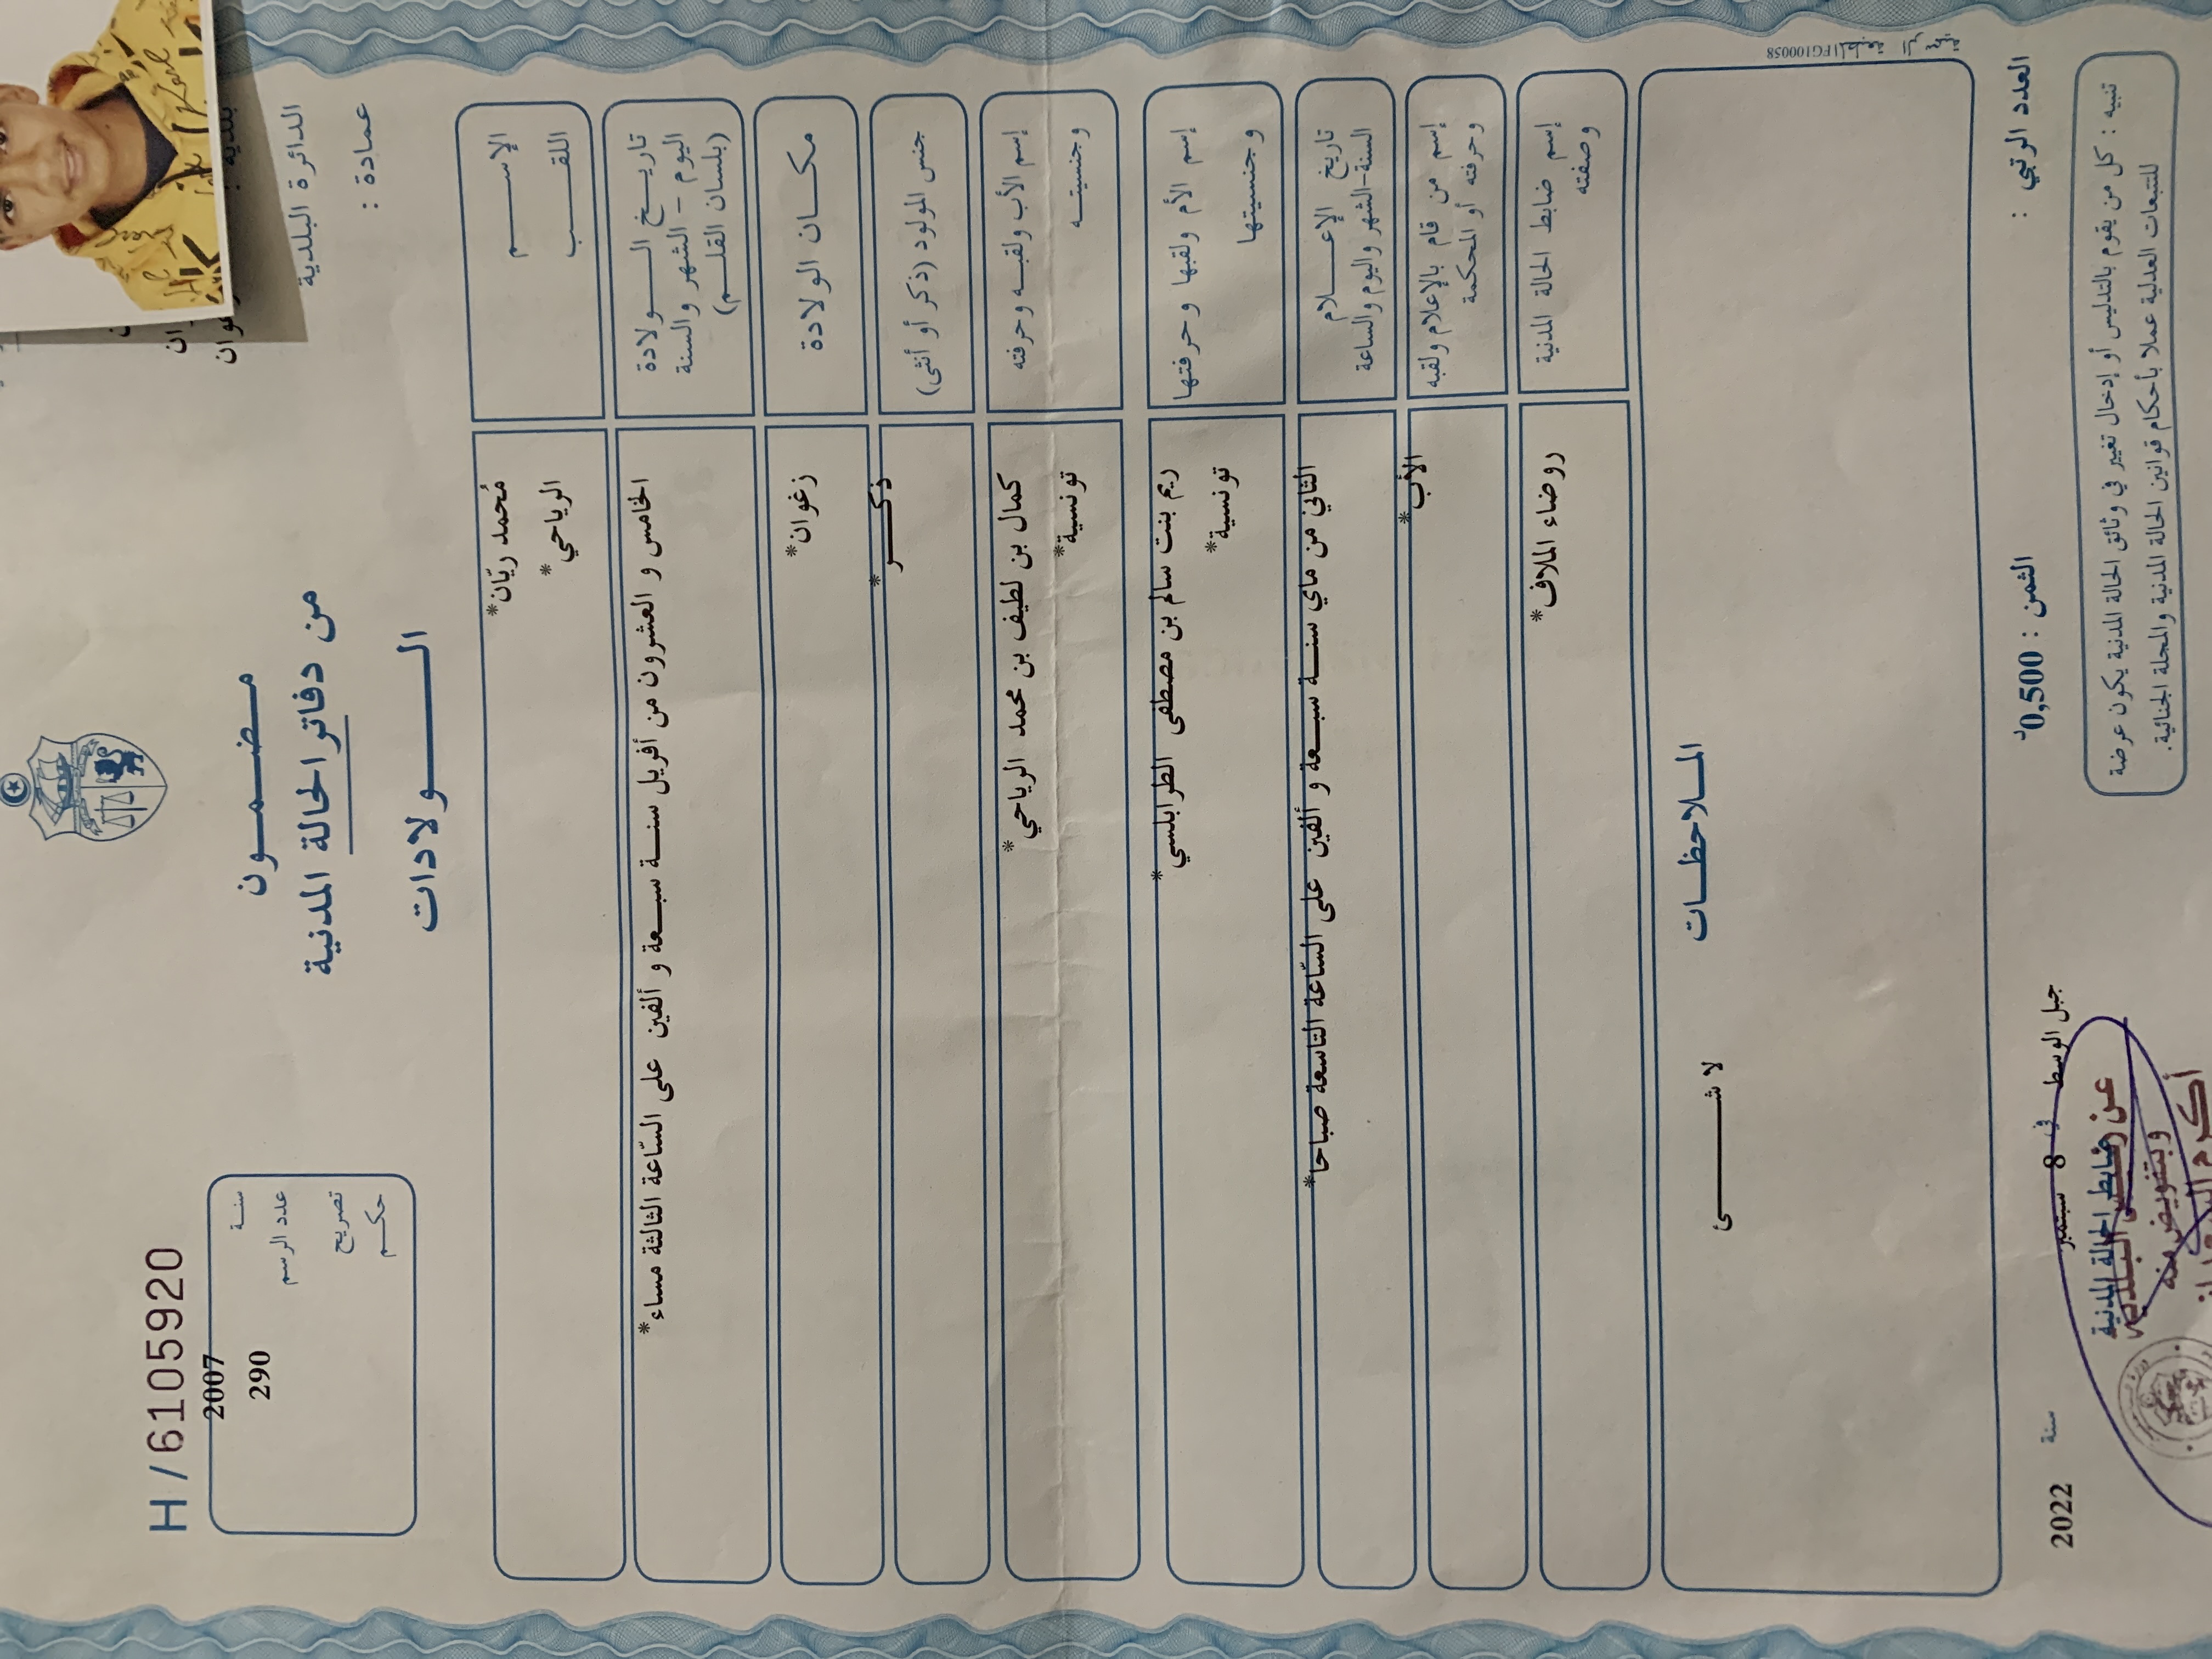 H / 6105920
سنة 2007
عدد الرسم 290
تصريح
حكـم
زغوان
بلدية :
الدائرة البلدية
عمادة :
مـضـمـون
من دفاتر الحالة المدنية
الـولادات
الإسـم
مُحمد ريّان*
اللقـب
الرياحي*
تاريـخ الـولادة
اليوم - الشهر والسنة
(بلسان القلـم)
الخامس و العشرون من أفريل سنـة سبـعة و ألفين على السّاعة الثالثة مساء*
مكـان الولادة
زغوان*
جنس المولود (ذكر أو أنثى)
ذكـر*
إسم الأب ولقبـه وحرفته
كمال بن لطيف بن محمد الرياحي*
وجنسيتـه
تونسية*
إسم الأم ولقبها وحرفتها
ريم بنت سالم بن مصطفى الطرابلسي*
وجنسيتها
تونسية*
تاريخ الإعـلام
السنة-الشهر واليوم والساعة
الثاني من ماي سنـة سبـعة و ألفين على السّاعة التاسعة صباحا*
إسم من قام بالإعلام ولقبه
وحرفته أو المحكمة
الأب*
إسم ضابط الحالة المدنية
وصفته
روضاء الملاف*
المـلاحظـات
لا شـئ
العدد الرتبي :
الثمن : 0,500د
جبل الوسط في 8 سبتمبر سنة 2022
ضابط الحالة المدنية
وبتفويض منه
تنبيه : كل من يقوم بالتدليس أو إدخال تغيير في وثائق الحالة المدنية يكون عرضة
للتتبعات العدلية عملا بأحكام قوانين الحالة المدنية والمجلة الجنائية.